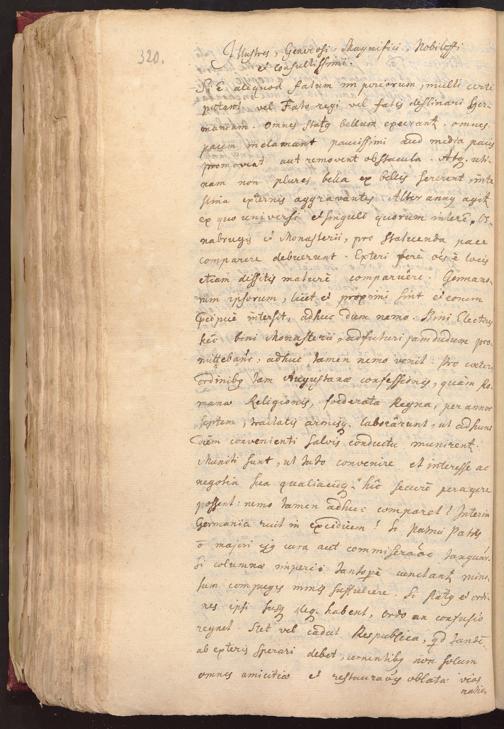 320.
Illustres, Generosi, Magnifici, Nobilissi
et consultissimi.
Si ē aliquod fatum imperiorum, multi certe
putent vel Fato regi vel fatis destinari Ger
maniam. omnes Statq bellum execrant. omnes
pacem inclamant paucissimi aut media pacis
promovent aut removent obstacula. Atq uti
nam non plures bella ex bellis sererent inte
stina externis aggravantes. Alter annq agit
ex quo universi et singuli quorum interē, Os
nabrugis et Monasterii, pro statuenda pace
comparere debuerunt. Exteri fere oēs ē locis
etiam dissitis mature comparuēre. Germano
rum ipsorum, licet et proximi sint et eorum
praecipue intersit, adhuc dum nemo. Smi Electores
hic bini Monasterii, adfuturi jamdudum pro
mittebant, adhuc tamen nemo venit. Pro caeteris
ordinibq tam Augustanae confessionis, quam Ro
manae Religionis, foederata Regna, per annos
septem, tractatq armisq laborarunt, ut ad hunc
conventum salvis conductq munirent.
Muniti sunt, ut tuto convenire et interesse ac
negotia sua qualiacuq hic secure peragere
possent: nemo tamen adhuc comparet! Interim
Germania ruit in excidium! Si Patriae Patres
ō majori ejq cura aut commiseraōe tangunt.
Si columnae imperii tantopē cunctant minae
sum compagis minis suffulcire. Si Statq et ordi
nes ipsi suas leges habent, ordo an confusio
regnet. Stet vel cadat Respublica, qd tandē
ab exteris sperari debet, cernentibq non solum
omnes amicitiae et restauraōis oblatas vias